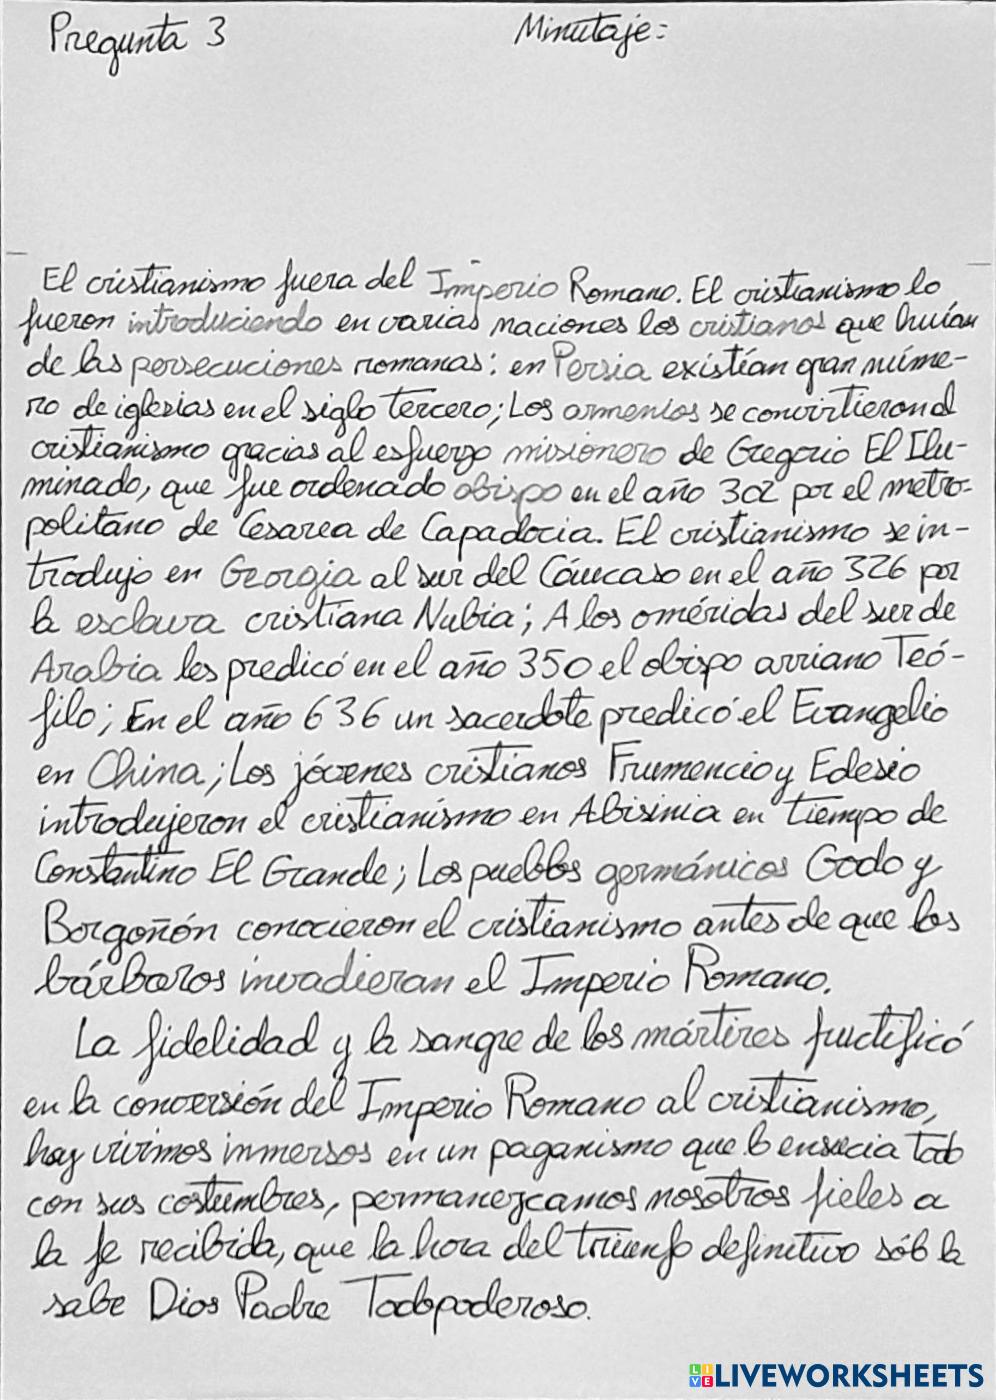 Pregunta 3 Minutaje:
El cristianismo fuera del Imperio Romano. El cristianismo lo
fueron introduciendo en varias naciones los cristianos que huían
de las persecuciones romanas: en Persia existían gran núme-
ro de iglesias en el siglo tercero; Los armenios se convirtieron al
cristianismo gracias al esfuerzo misionero de Gregorio El Ilu-
minado, que fue ordenado obispo en el año 302 por el metro-
politano de Cesarea de Capadocia. El cristianismo se in-
trodujo en Georgia al sur del Cáucaso en el año 326 por
la esclava cristiana Nubia; A los oméridas del sur de
Arabia les predicó en el año 350 el obispo arriano Teó-
filo; En el año 636 un sacerdote predicó el Evangelio
en China; Los jóvenes cristianos Frumencio y Edesio
introdujeron el cristianismo en Abisinia en tiempo de
Constantino El Grande; Los pueblos germánicos Godo y
Borgoñón conocieron el cristianismo antes de que los
bárbaros invadieran el Imperio Romano.
La fidelidad y la sangre de los mártires fructificó
en la conversión del Imperio Romano al cristianismo,
hoy vivimos inmersos en un paganismo que lo ensucia todo
con sus costumbres, permanezcamos nosotros fieles a
la fe recibida, que la hora del triunfo definitivo sólo la
sabe Dios Padre Todopoderoso.
LIVEWORKSHEETS